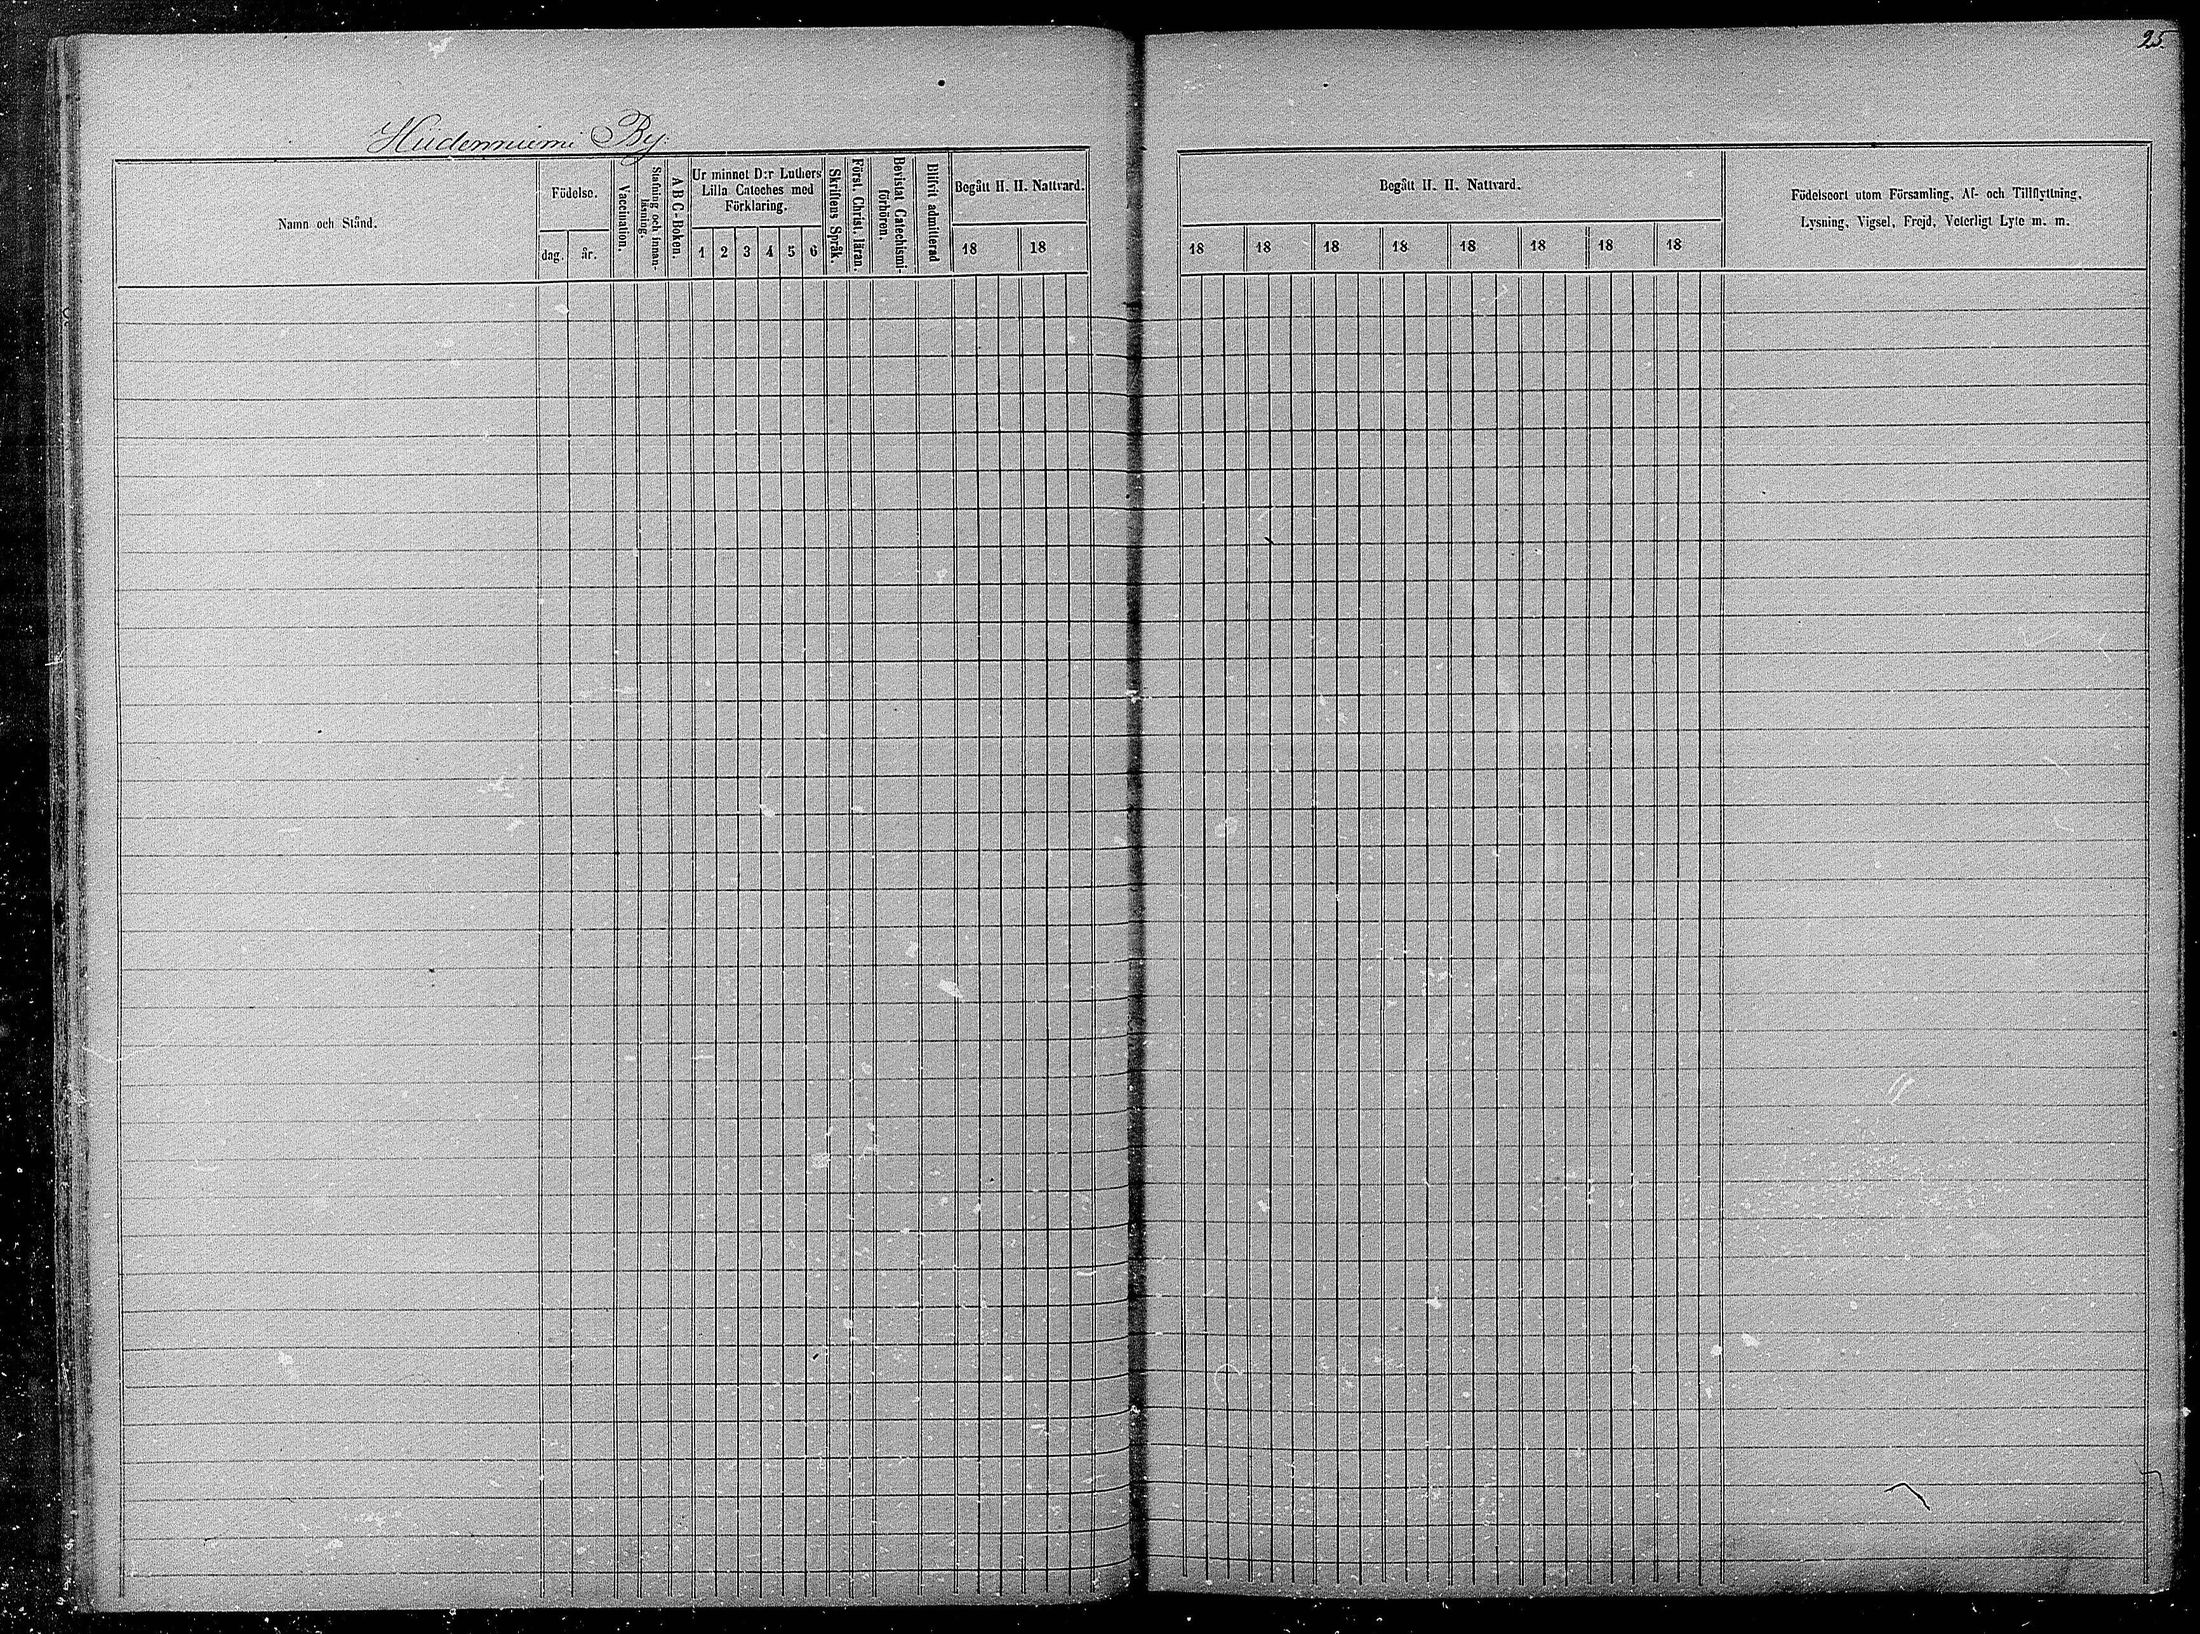 25.
Hiidenniemi By.
Namn och Stånd.
Födelse.
dag.
år.
Vaccination.
Stafning och innan-
läsning.
ABC-Boken.
Ur minnet D:r Luthers
Lilla Cateches med
Förklaring.
1 2 3 4 5 6
Skriftens Språk.
Först. Christ. läran.
Bevistat Catechismi-
förhören.
Blifvit admitterad
Begått H. H. Nattvard.
18 18
Begått H. H. Nattvard.
18 18 18 18 18 18 18 18
Födelseort utom Församling, Af- och Tillflyttning,
Lysning, Vigsel, Frejd, Veterligt Lyte m. m.